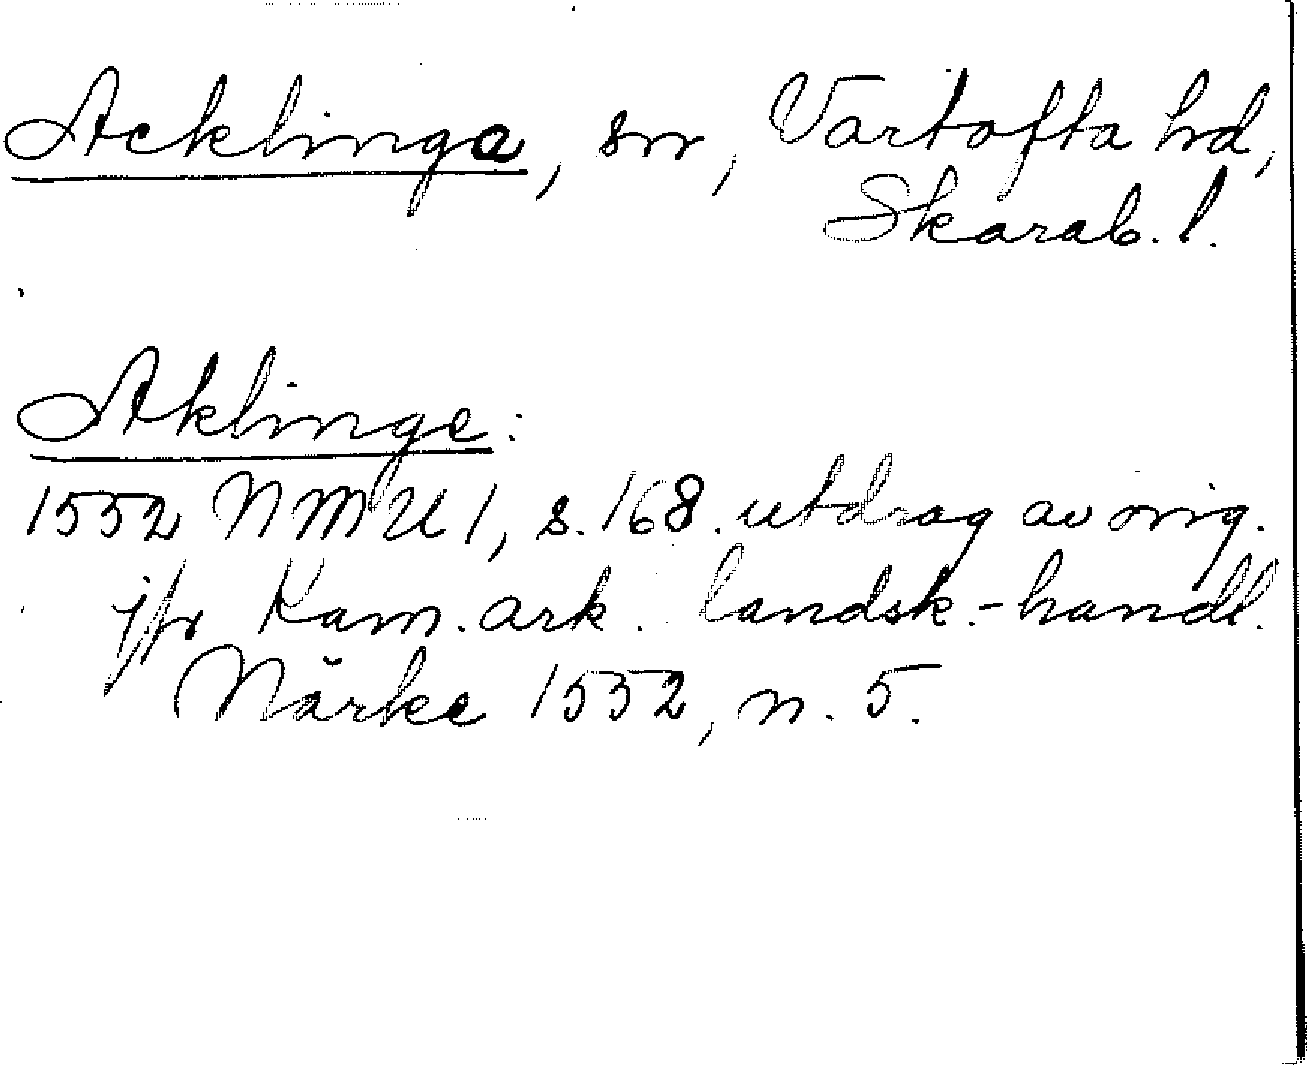 Acklinga, sn, Vartofta hd,
Skarab. l.
Aklinge:
1552 NMU 1, s. 168. utdrag av orig.
jfr Kam. ark. landsk.-handl.
Närke 1552, n. 5.